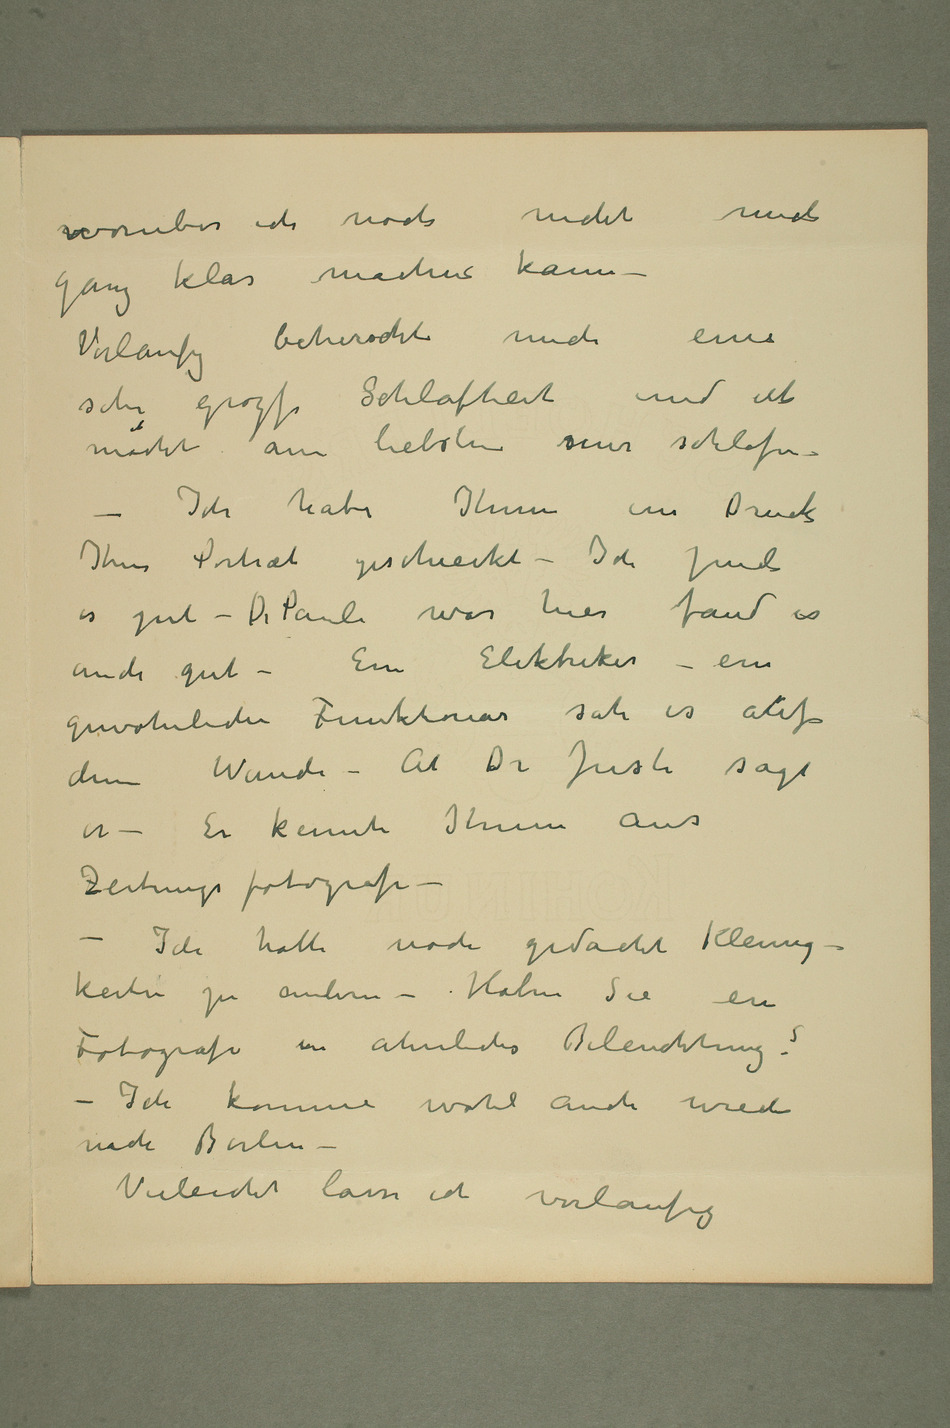 worüber ich noch nicht mich
ganz klar machen kann –
Vorläufig beherscht mich eine
sehr grozse Schlafheit und ich
möcht am liebsten nur schlafen –
– Ich habe Ihnen ein Druck
Ihres Porträt geschieckt – Ich find
es gut – Dr Pauli war hier fand es
auch gut – Ein Elektriker – ein
gewöhnlicher Funktionär sah es auf
dem Wande – At Dr Juste sagt
er – Er kennte Ihnen aus
Zeitungsfotografi –
– Ich hatte noch gedacht Kleinig-
keiten zu ändern – Haben Sie ein
Fotografi in ähnliches Beleuchtung?
– Ich komme wohl auch wied
nach Berlin –
Vieleicht lasse ich vorläufig